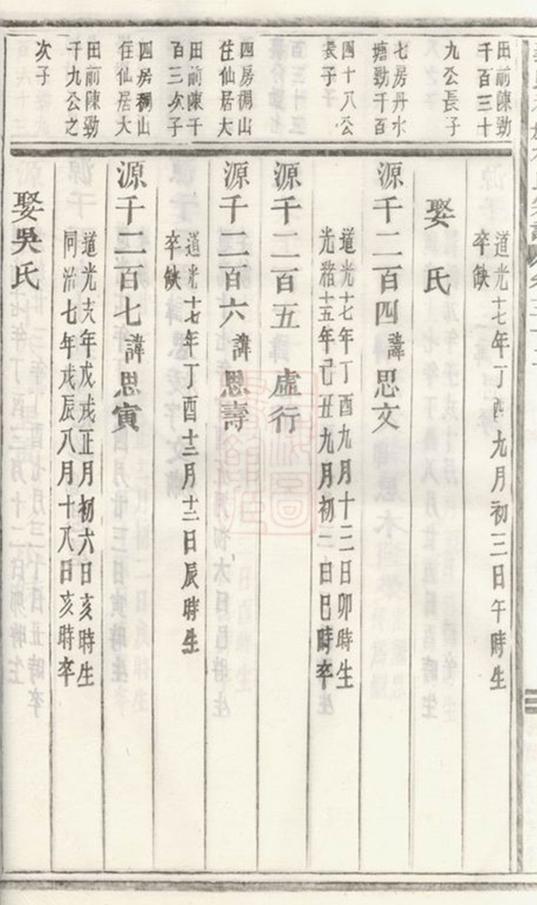 田前陳勁
千百三十
九公長子
七房丹水
塘勁千百
四十八公
長子
四房稠山
住仙居大
田前陳千
百三次子
四房稠山
住仙居大
田前陳勁
千九公之
次子
道光十七年丁酉九月初三日午時生
卒缺
娶 氏
源千二百四諱思文
道光十七年丁酉九月十二日卯時生
光緒十五年己丑九月初二日巳時卒
源千二百五 虛行
源千二百六諱思壽
道光十七年丁酉十二月十二日辰時生
卒缺
源千二百七諱思寅
道光十八年戊戌正月初六日亥時生
同治七年戊辰八月十八日亥時卒
娶吳氏